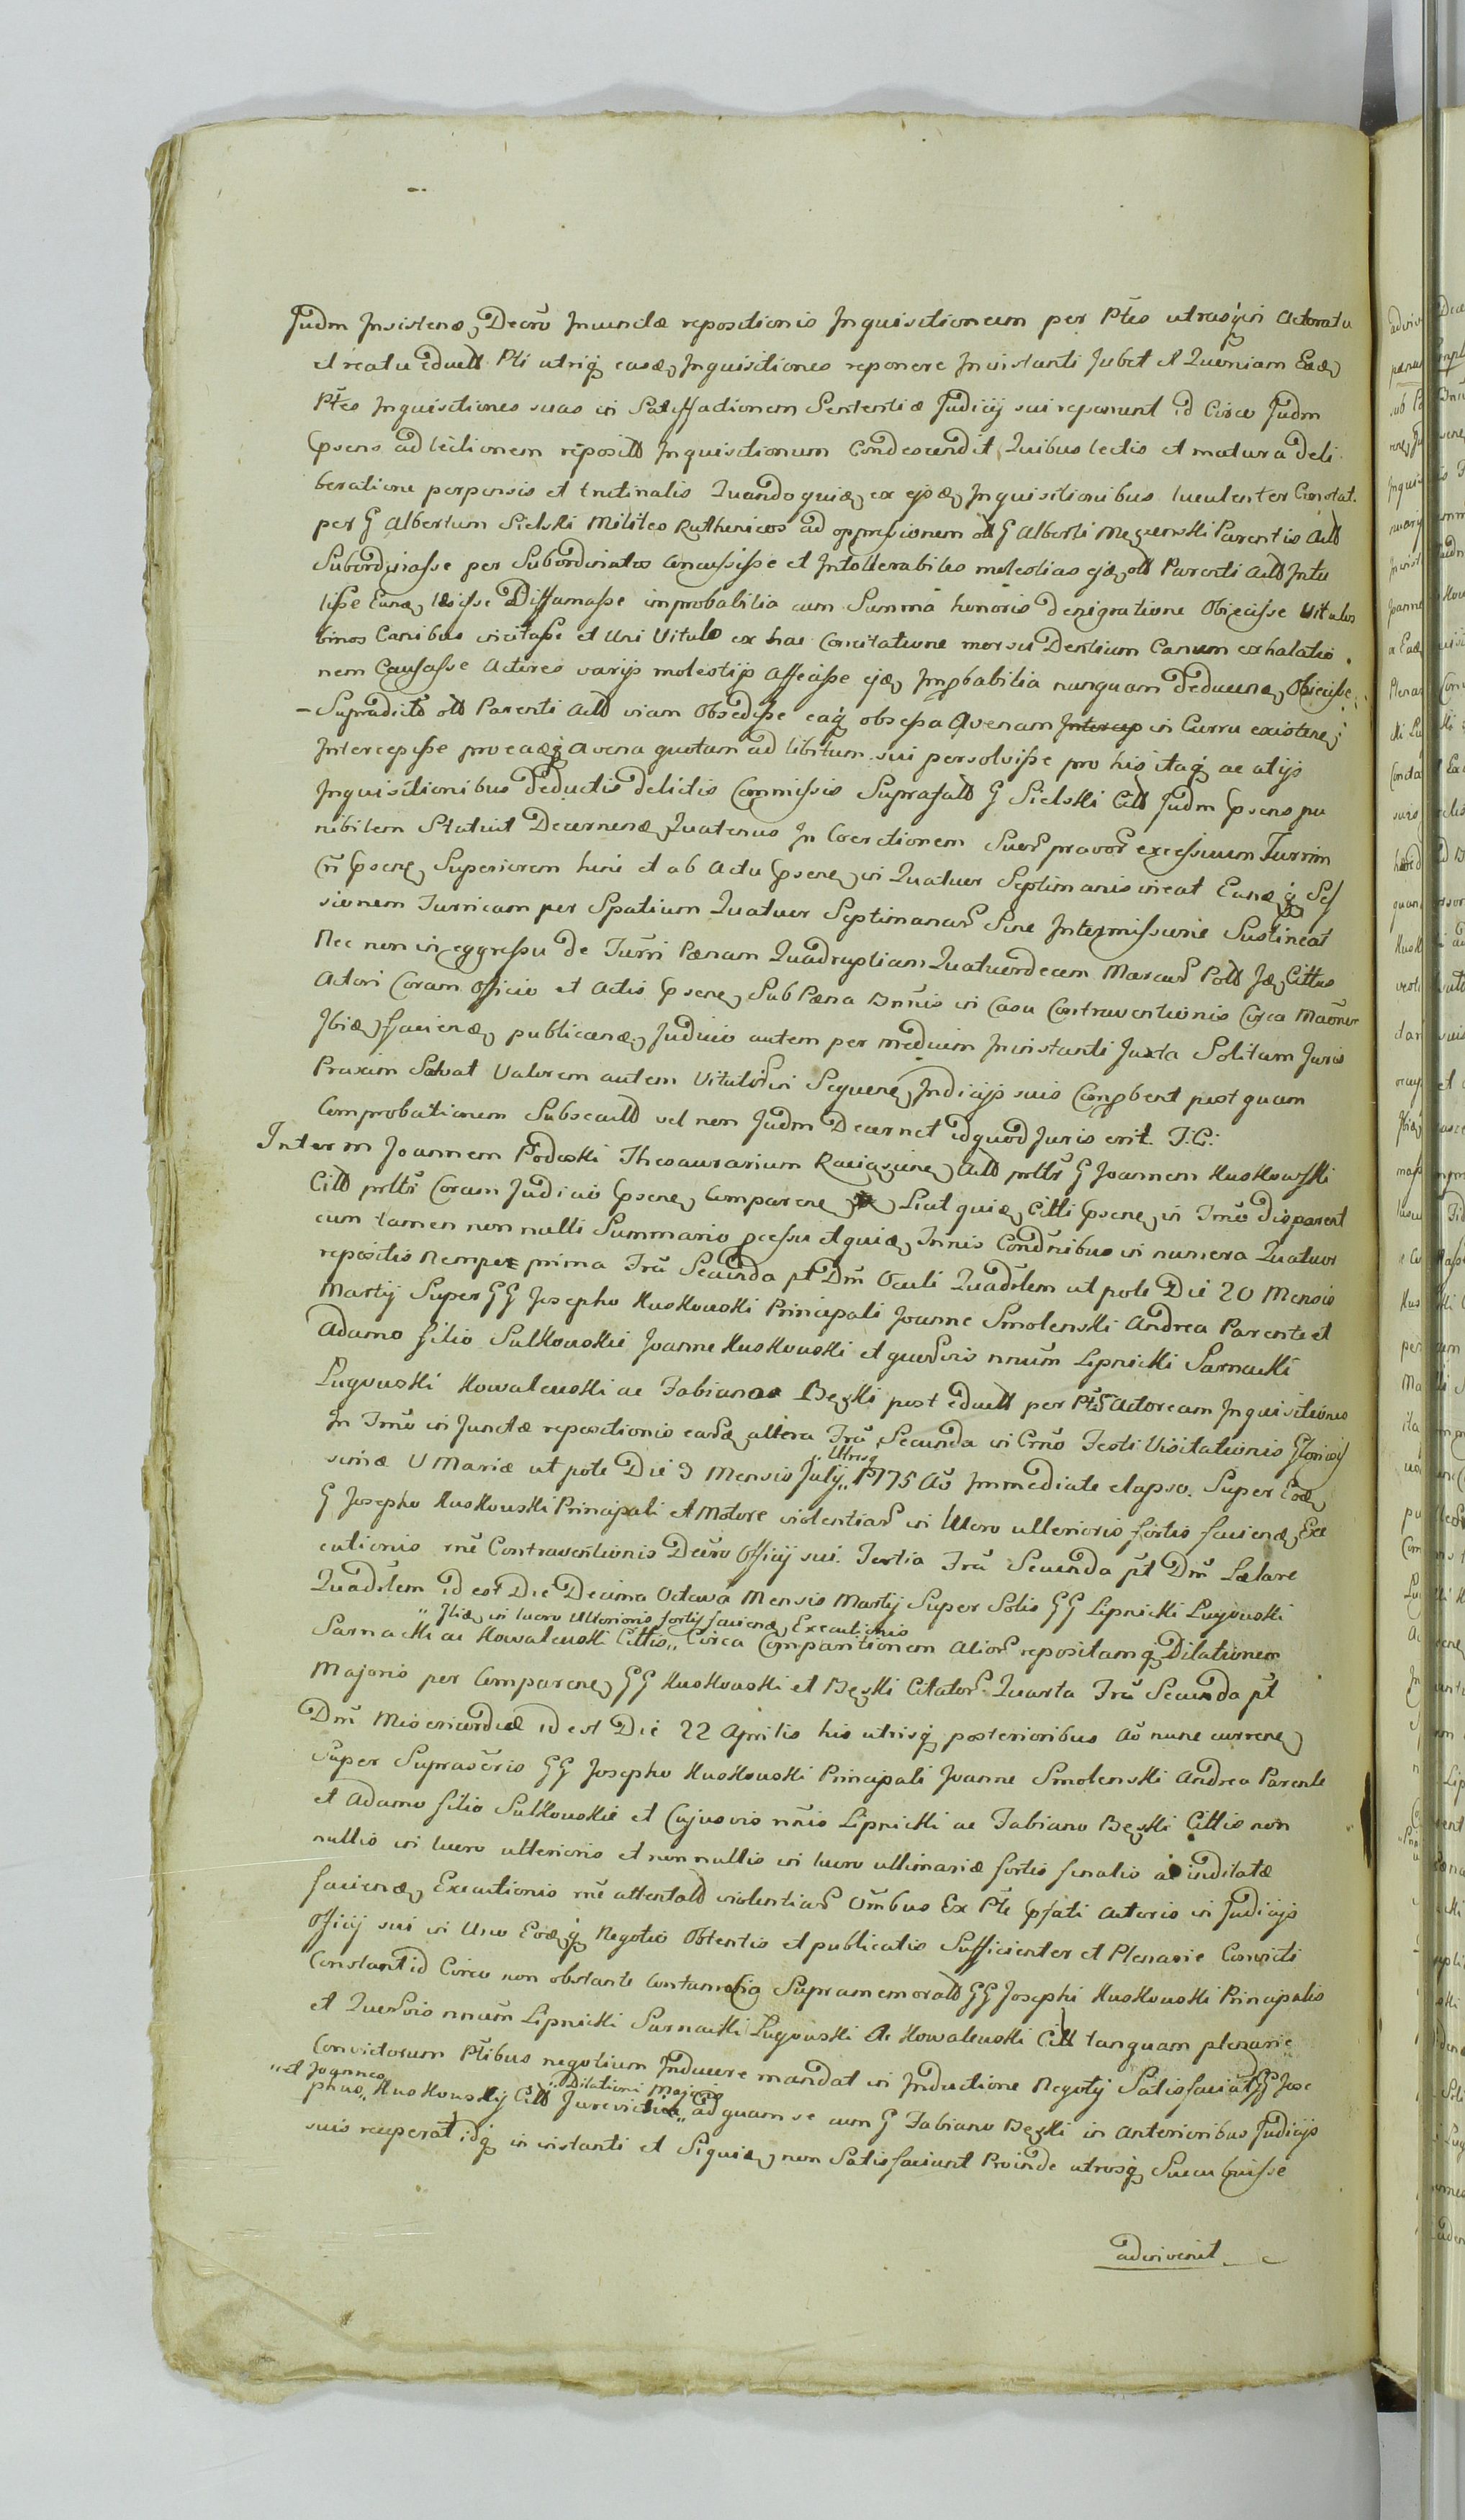 Judm Insistens Decro Injunctæ repositionis Inquisitionum per Ptes utrasq in Actoratu
et reatu eduett Pti utriq easd Inquisitiones reponere Ininstanti Jubet et Quoniam Eæd
Ptes Inquisitiones suas in Satisfactionem Sententiæ Judicij sui reponunt id Circo Judm
psens ad lectionem reposit Inquisitionum Condescendit, Quibus lectis et matura deli
beratione perpensis et trutinatis Quandoquid ex ejsd Inquisitionibus luculenter Constat
per G Albertum Sielski Milites Ruthenicos ad oppressionem G Alberti Parentis Act
Subordinasse per Subordinatos Concussisse et Intollerabiles molestias Parenti Act Intu
lisse Eund læsisse Diffamasse improbabilia cum Summa honoris denigratione Obiecisse Vitulos
binos Canibus incitasse et Uni Vitulo ex hac Concitatione morsu Dentium Canum exhalatio
nem Causasse Actores varijs molestijs Affecisse Improbabilia nunquam deducend Obiecisse
Supradicto Parenti Act viam Obsedisse eaq obsessa Avenam Intercep in Curru existen
Intercepisse pro eadq Avena quotam ad libitum sui persolvisse pro his itaq ac alijs
Inquisitionibus deductis delictis Commissis Suprafat G Sielski Citt Judm psens pu
nibilem Statuit Decernend Quatenus In Coerctionem Suor pravor excessuum Turrim
Cri psen Superiorem hinc et ab Actu psen in Quatuor Septimanis ineat Eandq Ses
sionem Turricam per Spatium Quatuor Septimanar Sine Intermissione Sustineat
Nec non in eggressu de Turri Pænam Quadruplicem Quatuordecem Marcar Poll Cittus
Actori Coram Officio et Actis psen Sub Pæna Bnnis in Casu Contraventionis Circa
Ibid faciend publicand Judicio autem per medium Ininstanti Juxta Solitum Juris
Praxim Solvat Valorem autem Vitulor in Sequen Judicijs suis Comprobent post quam
Comprobationem Subsecutt vel non Judm Decernet id quod Juris erit. T:C:
Inter m Joannem Podoski Thesaurarium Raciazinen Act G Joannem Kuskowski
Citt Coram Judicio psen Comparen Licet quid Citti psen in Tmo disparent
cum tamen non nulli Summario pcessu et quid Tnnis Condnibus in numero Quatuor
repositis Nempe prima Tra Secunda pt Dm Oculi Quadrlem ut pote Die 20 Mensis
Martij Super GG Josepho Kuskowski Principali Joanne Smolenski Andrea Parente et
Adamo filio Sulkowskie Joanne Kuskowski et quorvis nnum Lipnicki Sarnacki
Lugowski Kowalewski ac Fabiano Beski post eduett per Ptem Actoream Inquisitiones
In Tmo in Junctæ repositionis eard altera Tra Secunda in Crno Festi Visitationis Gloriosis
" Utrisq
simæ V Mariæ ut pote Die 3 Mensis July " 1775 Ao Immediate elapso. Super Eod
G Josepho Kuskowski Principali et Motore violentiar in lucro ulterioris fortis faciend Exe
cutionis rne Contraventionis Decro Officij sui. Tertia Tra Secunda pt Dm Lætare
Quadrlem id est Die Decima Octava Mensis Martij Super Solis GG Lipnicki Lugowski
" Ibid in lucro Ulterioris fortis faciend Executionis
Sarnacki ac Kowalewski Cittis " Circa Comparitionem Alior repositamq Dilationem
Majoris per Comparen GG Kuskowski et Beski Citator Quarta Tra Secunda pt
Dm Misericordiæ id est Die 22 Aprilis his utrisq posterioribus Ao nunc curren
Super Suprascris GG Josepho Kuskowski Principali Joanne Smolenski Andrea Parente
et Adamo filio Sulkowskie et Cujusvis nnis Lipnicki ac Fabiano Beski Cittis non
nullis in lucro ulterioris et non nullis in lucro ultimariæ fortis finalis ac inditatæ
faciend Executionis rne attentatt violentiar Ombus Ex Pte psati Actoris in Judicijs
Officij sui in Uno Eodq Negotio Obtentis et publicatis Sufficienter et Plenarie Convicti
Constant id Circo non obstante Contumacia Supramemoratt GG Josephi Kuskowski Principalis
et Quorvis nnum Lipnicki Sarnacki Lugowski Ac Kowalewski Citt tanquam plenarie
Convictorum Ptibus negotium Inducere mandat in Inductione Negotij Satisfaciat GG Jose
" et Joannes " Dilationi Majoris
phus " Kuskowskij Citt Jurevictæ " ad quam se cum G Fabiano Beski in Anterioribus Judicijs
suis receperat idq in instanti et Siquid non Satisfaciunt Proinde utrosq Succubuisse
adinvenit